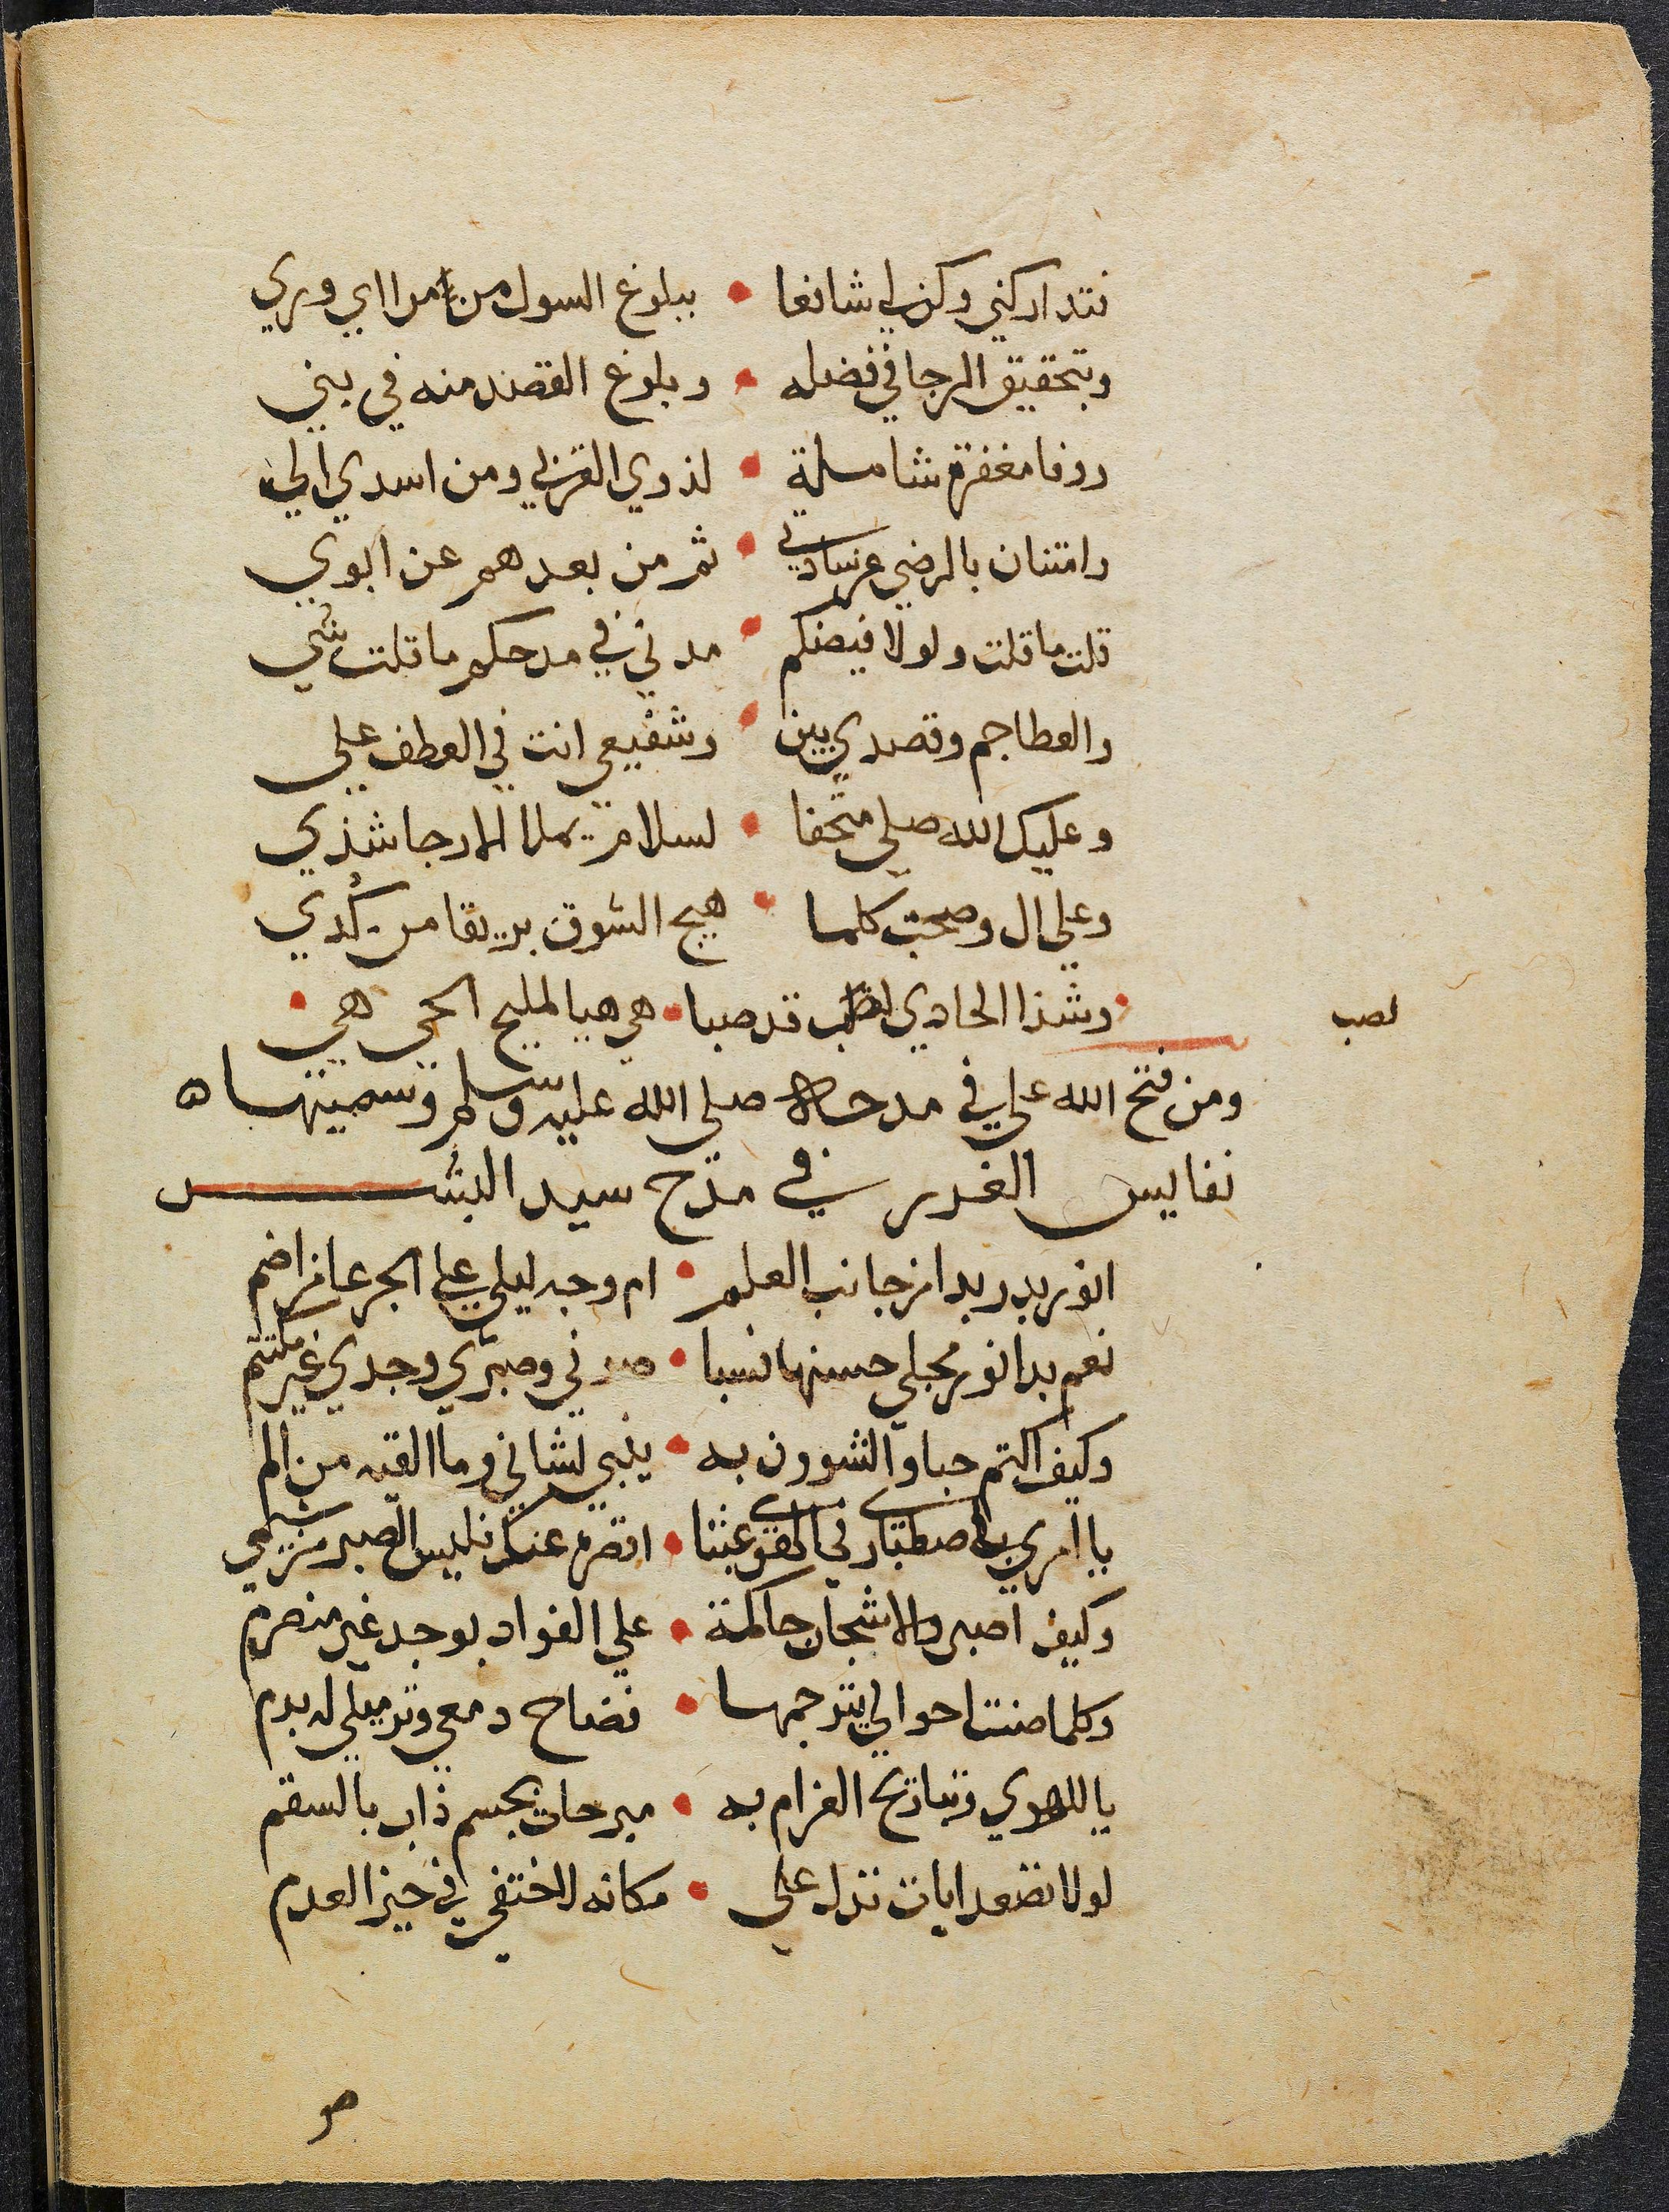 فتداركني وكن لي شافعا • ببلوغ السول من مراي وري
وبتحقيق الرجا في فضله • وبلوغ القصد منه في بني
ووفا مغفرة شاملة • لذوي القربي ومن اسدي الي
وامتنان بالرضي عن سادتي • ثم من بعدهم عن ابوي
قلت ما قلت ولولا فيضكم • مدني في مدحكم ما قلت شي
والعطا جم وقصدي بين • وشفيعي انت في العطف علي
وعليك الله صلي متحفا • لسلام يملا الارجا شذي
وعلي ال وصحب كلما • هيج الشوق بريقا من كُدي
• وشذا الحادي لصب قد صبا • هي هيا المليح الحي هي •
لصب
ومن فتح الله علي في مدحه صلي الله عليه وسلم وسميتها ه
نفايس الغرر في مدح سيد البشر
انور بدر بدا من جانب العلم • ام وجه ليلي علي الجرعا من اضم
نعم بدا نور مجلي حسنها فسبا • صوني وصبري وجدي غير مكتتم
وكيف اكتم حبا والشوون به • ينبي لشاني وما القيه من الم
يا امري باصطباري في الهوي عبثا • اقصر عنك فليس الصبر من شيمي
وكيف اصبر والاشجان حاكمة • علي الفواد بوجد غير منصرم
وكلما صنت احوالي يترجمها • فضاح دمعي وترميلي له بدم
يا للهوي وتباريح الغرام به • مبرحات بجسم ذاب بالسقم
لولا تصعد ايات تدل علي • مكانه لاختفي في حيز العدم